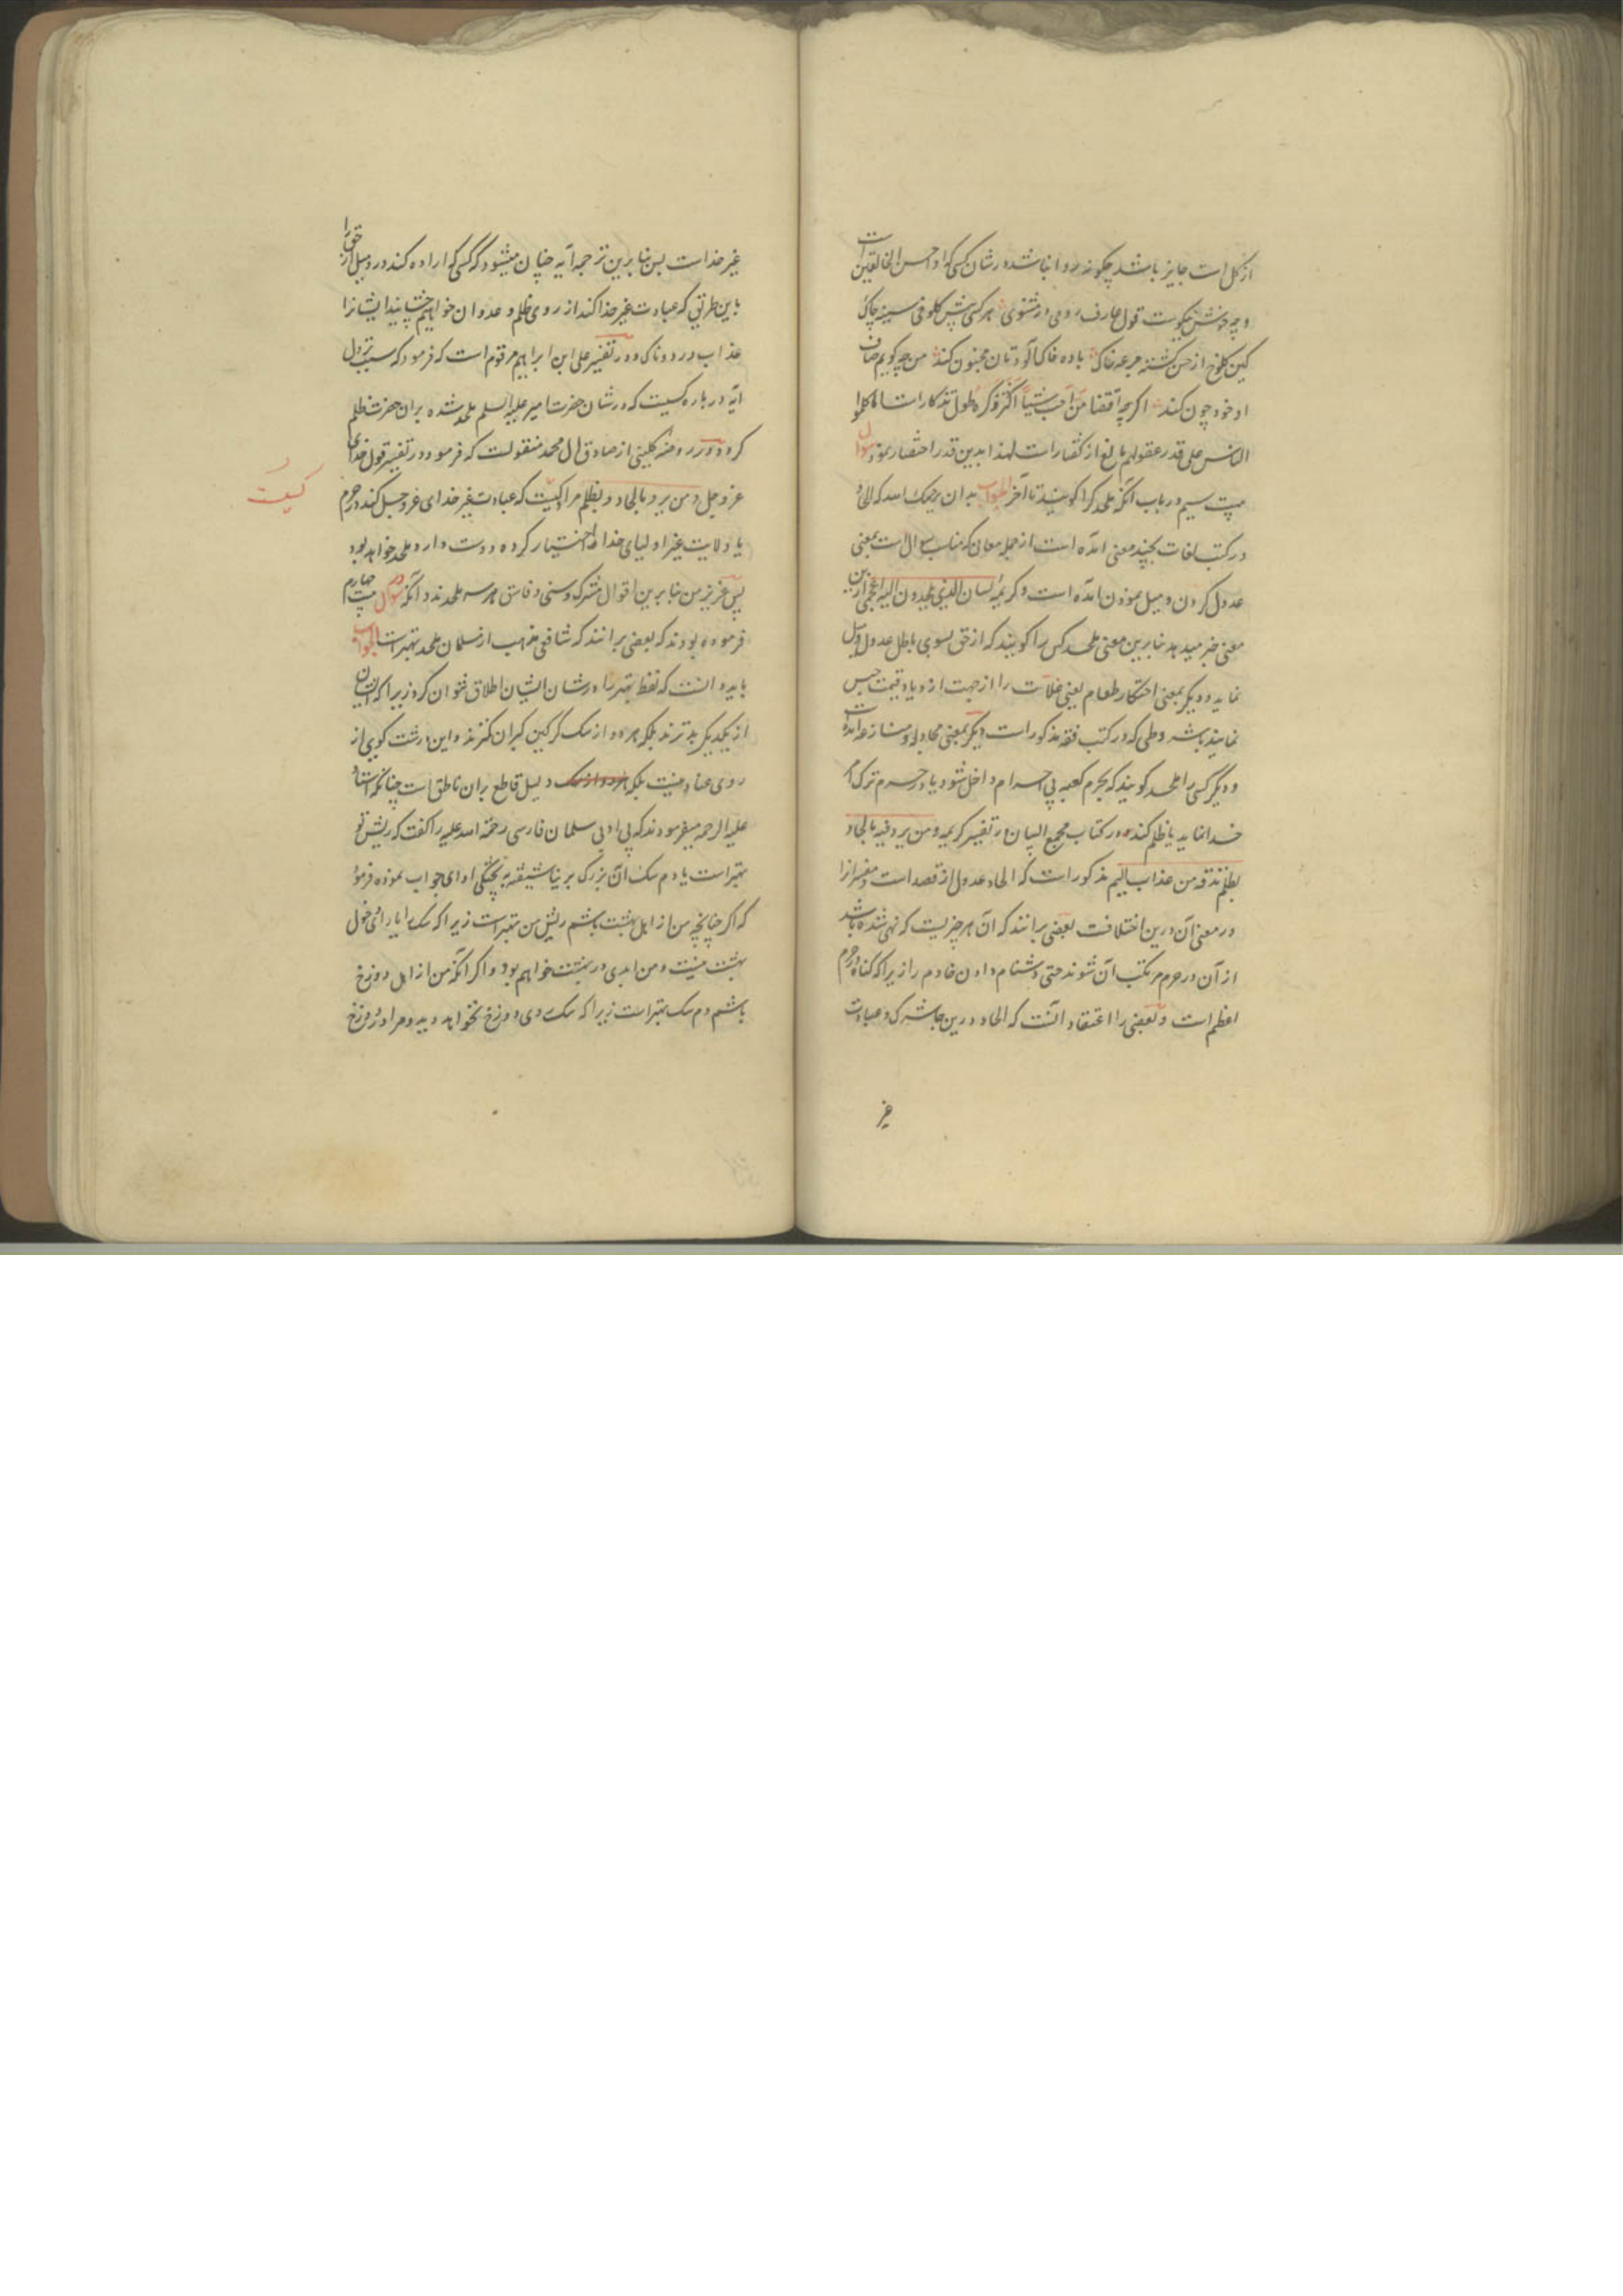 از کل است جایز باشد چگونه روا نباشد در شان کسی که او احسن الخالقین است
و چه خوش نیکوست قول عارف رومی در مثنوی هر کسی پیش کلوخی سینه چاک
کین کلوخ از حسن کشته جرعه خاک باده خاک آلودتان مجنون کند من چه گویم صاف
او خود چون کند اگرچه اقتضا من احب شیئا اکثر ذکره طول تذکار است اما کلموا
الناس علی قدر عقولهم مانع از گفتار است لهذا بدین قدر اختصار نمود سوال
بیست سیم در باب آنکه ملحد کرا گویند تا آخر الجواب بدان رحمک الله که الحاد
در کتب لغات بچند معنی آمده است از جمله معانی که مناسب سوال است بمعنی
عدول کردن و میل نمودن آمده است و کریمه لسان الذی یلحدون الیه اعجمی ازین
معنی خبر میدهد بنابرین معنی ملحد کسی را گویند که از حق بسوی باطل عدول و میل
نماید و دیگر بمعنی احتکار طعام یعنی غلات را از جهت ازدیاد قیمت حبس
نمایند بشروطی که در کتب فقه مذکور است دیگر بمعنی مجادله و منازعه آمده است
و دیگر کسی را ملحد گویند که بحرم کعبه بی احرام داخل شود یا در حرم ترک امر
خدا نماید یا ظلم کند و در کتاب مجمع البیان در تفسیر کریمه و من یرد فیه بالحاد
بظلم نذقه من عذاب الیم مذکور است که الحاد عدول از قصد است و مفسران را
در معنی آن درین اختلافست بعضی برانند که آن هر چیزیست که نهی شده باشد
از آن در حرم مرتکب آن شوند حتی دشنام دادن خادم را زیرا که گناه در حرم
اعظم است و بعضی را اعتقاد آنست که الحاد درین جا شرک و عبادت
غیر
غیر خداست پس بنابرین ترجمه آیه چنان میشود که کسی که اراده کند در و میل از حق را
باین طریق که عبادت غیر خدا کند از روی ظلم و عدوان خواهیم چشانید ایشانرا
عذاب دردناک و در تفسیر علی ابن ابراهیم مرقوم است که فرمود که سبب نزول
آیه در باره کسیست که در شان حضرت امیر علیه السلم ملحد شده بران حضرت ظلم
کرد و در روضه کلینی از صادق ال محمد منقولست که فرمود در تفسیر قول خدای
عز و جل و من یرد بالحاد و بظلم مراد کسیست که عبادت غیر خدای عز و جل کند در حرم
کیست
یا ولایت غیر اولیای خدا اختیار کرده دوست دارد ملحد خواهد بود
پس عزیز من بنابرین اقوال مشرک و سنی و فاسق هر سه ملحدند و آنکه در سوال بیست چهارم
فرموده بودند که بعضی برانند که شافعی مذهب از مسلمان ملحد بهتر است الجواب
باید دانست که لفظ بهتر را در شان ایشان اطلاق نتوان کرد زیرا که ایشان
از یکدیگر بدترند بلکه هر دو از سک گرگین گبران کمترند و این درشت گویی از
روی عناد نیست بلکه هر دو از سک دلیل قاطع بران ناطق است چنانکه استاد
علیه الرحمه میفرمودند که بی ادبی سلمان فارسی رحمة الله علیه را گفت که ریش تو
بهتر است یا دم سک آن بزرگ بی ادای جواب نموده فرمود
که اگر چنانچه من از اهل بهشت باشم ریش من بهتر است زیرا که سک را یارای دخول
بهشت نیست و من ابدی در بهشت خواهم بود و اگر آنکه من از اهل دوزخ
باشم دم سک بهتر است زیرا که سک روی دوزخ نخواهد دید و مرا در دوزخ